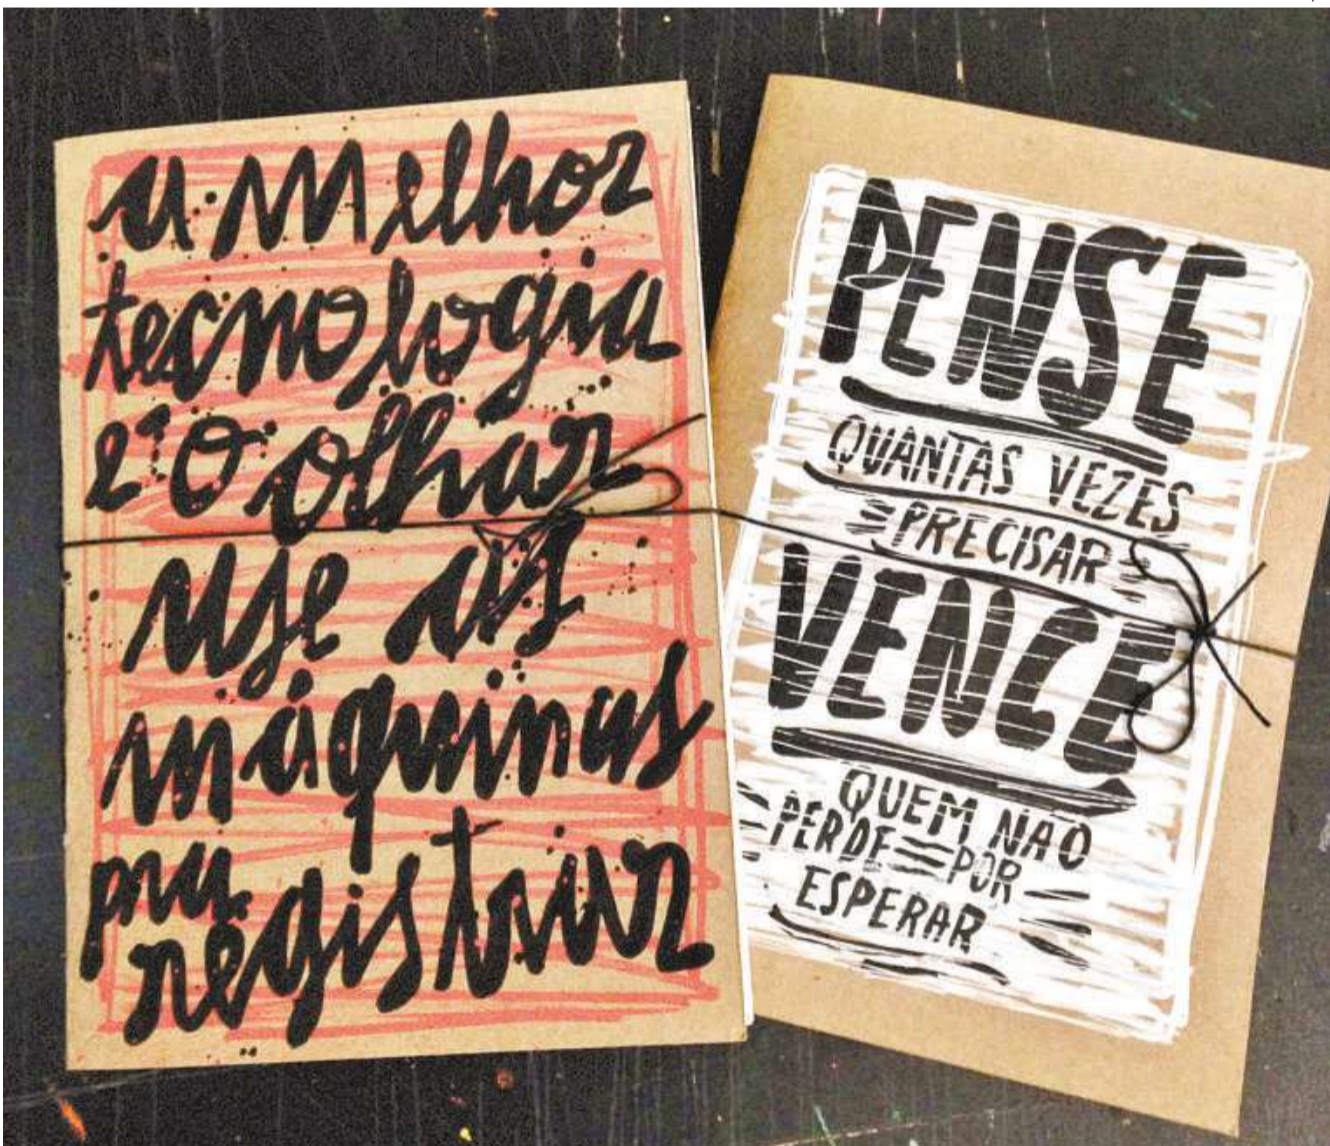 a melhor
tecnologia
é o olhar
use as
máquinas
pra
registrar
PENSE
QUANTAS VEZES
PRECISAR
VENCE
QUEM NAO
PERDE POR
ESPERAR